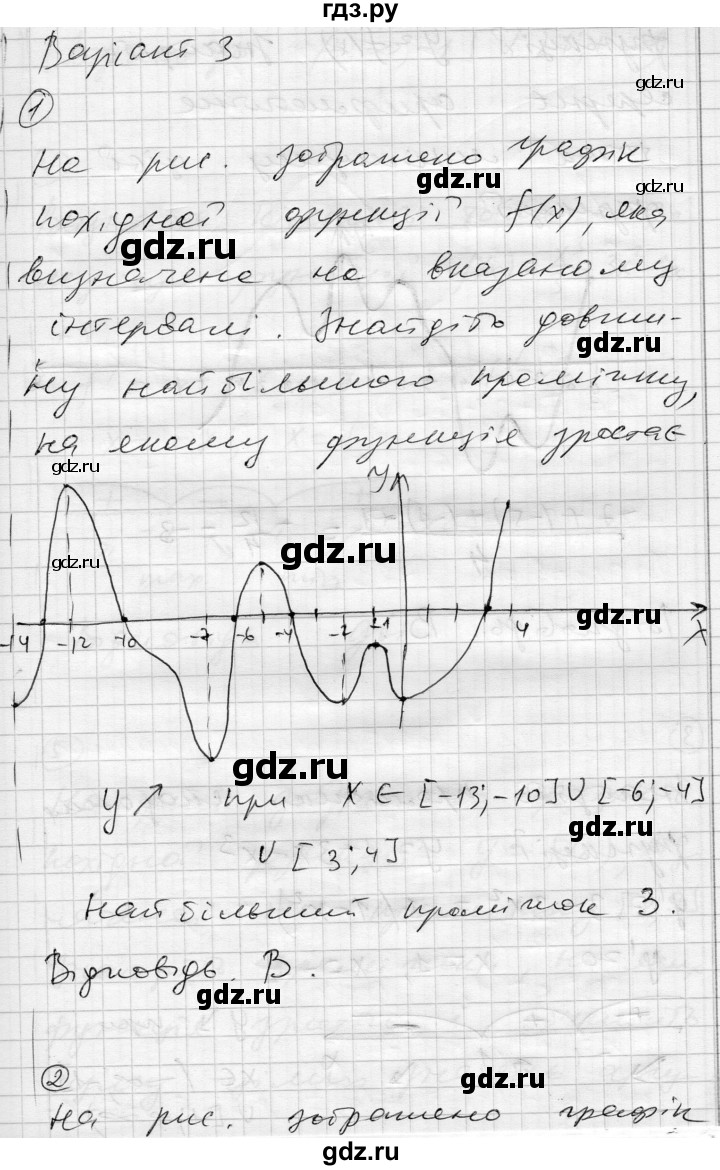 гдз.ру
Варіант 3
gdz.ru
1
На рис. зображено графік
gdz.ru
похідної функції f(x), яка
gdz.ru
gdz.ru
визначена на вказаному
інтервалі. Знайдіть довжи-
gdz.ru
ну найбільшого проміжку,
на якому функція зростає
gdz.ru
y
gdz.ru
gdz.ru
gdz.ru
-14 -12 -10 -7 -6 -4 -2 -1 4 x
gdz.ru
y ↗ при x ∈ [-13;-10] ∪ [-6;-4]
gdz.ru
∪ [3;4]
Найбільший проміжок 3.
gdz.ru
Відповідь. В.
gdz.ru
2
gdz.ru
На рис. зображено графік
gdz.ru